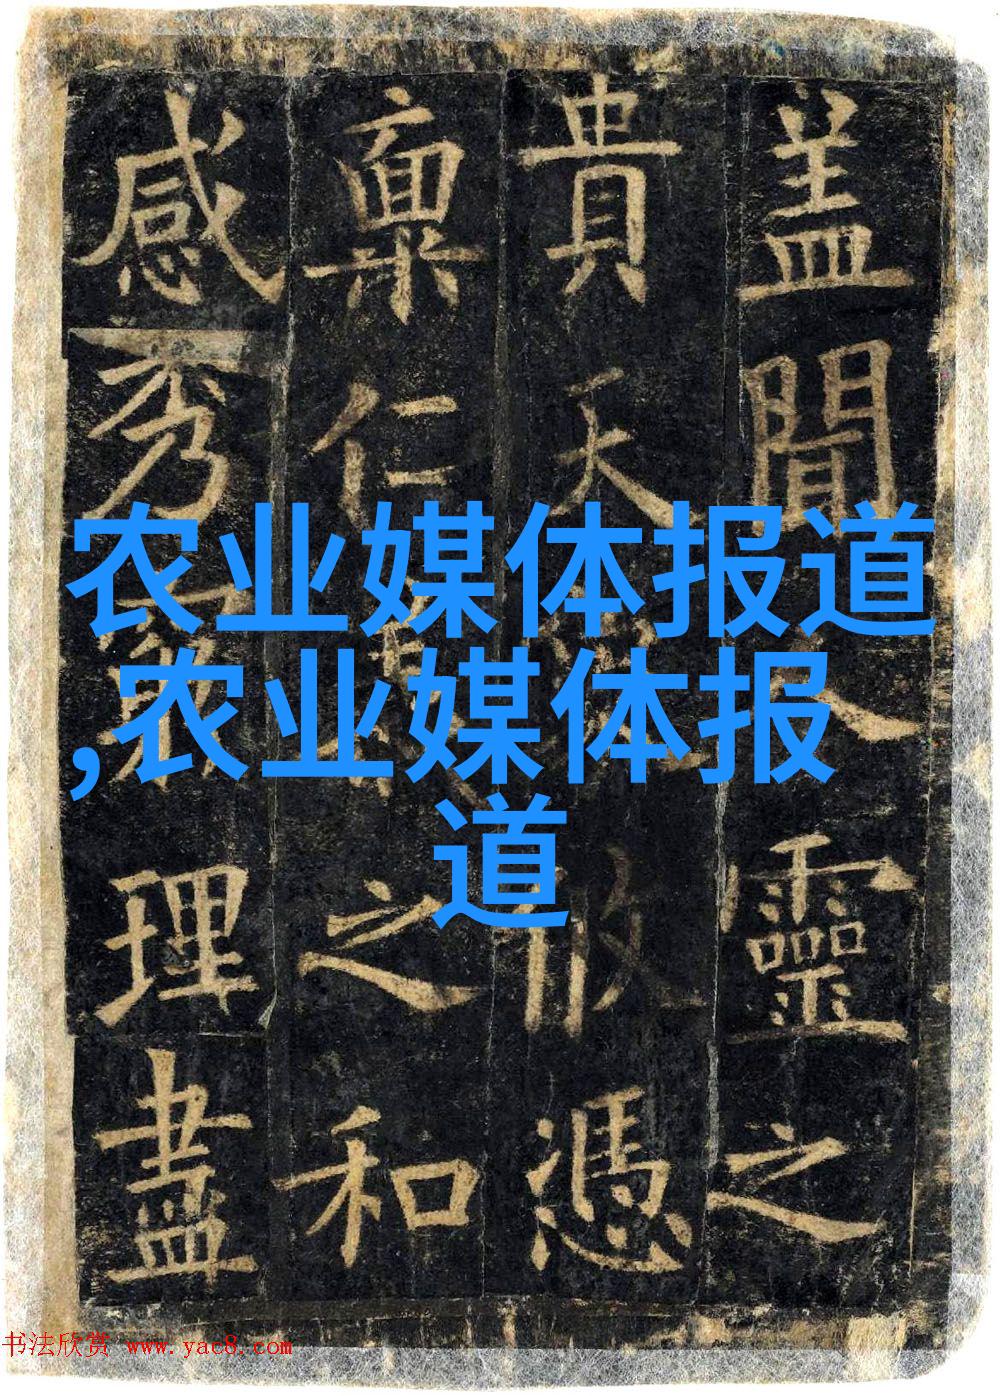 盖聞靈之
貴天攸憑
稟仁之和
感秀理盡
农业媒体报道
,农业媒体报
道
书法欣赏 www.yac8.com